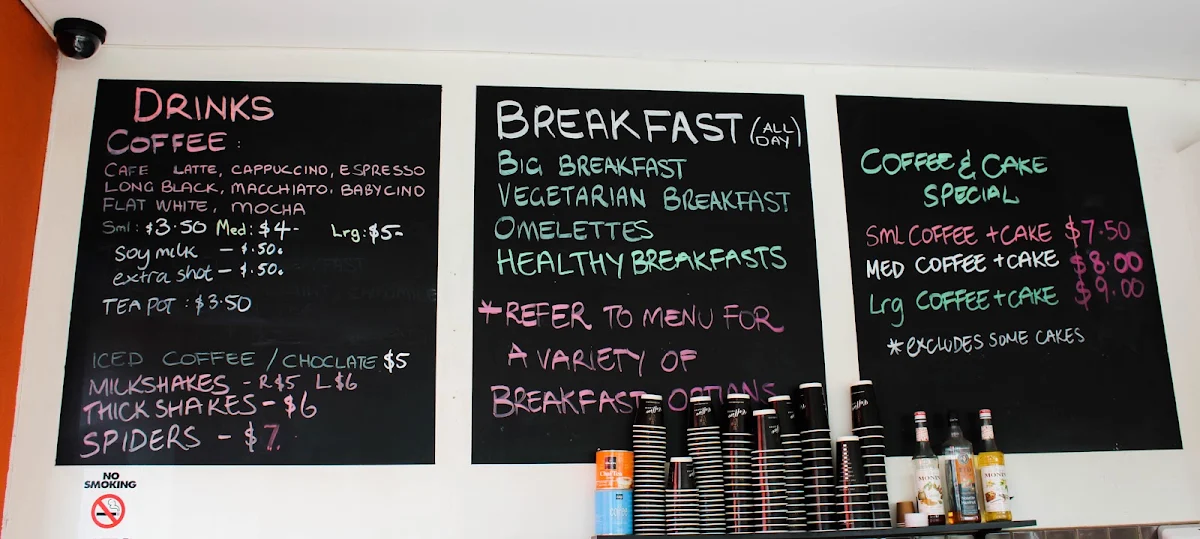 DRINKS
COFFEE:
CAFE LATTE, CAPPUCCINO, ESPRESSO
LONG BLACK, MACCHIATO. BABYCINO
FLAT WHITE, MOCHA
Sml: $3.50 Med: $4- Lrg: $5-
Soy milk - $.50c
extra shot - $.50c
TEA POT : $3.50
ICED COFFEE / CHOCLATE $5
MILKSHAKES - R$5 L$6
THICKSHAKES - $6
SPIDERS - $7.
BREAKFAST (ALL DAY)
BIG BREAKFAST
VEGETARIAN BREAKFAST
OMELETTES
HEALTHY BREAKFASTS
*REFER TO MENU FOR
A VARIETY OF
BREAKFAST OPTIONS
COFFEE & CAKE
SPECIAL
SML COFFEE + CAKE $7.50
MED COFFEE + CAKE $8.00
Lrg COFFEE + CAKE $9.00
*EXCLUDES SOME CAKES
NO
SMOKING